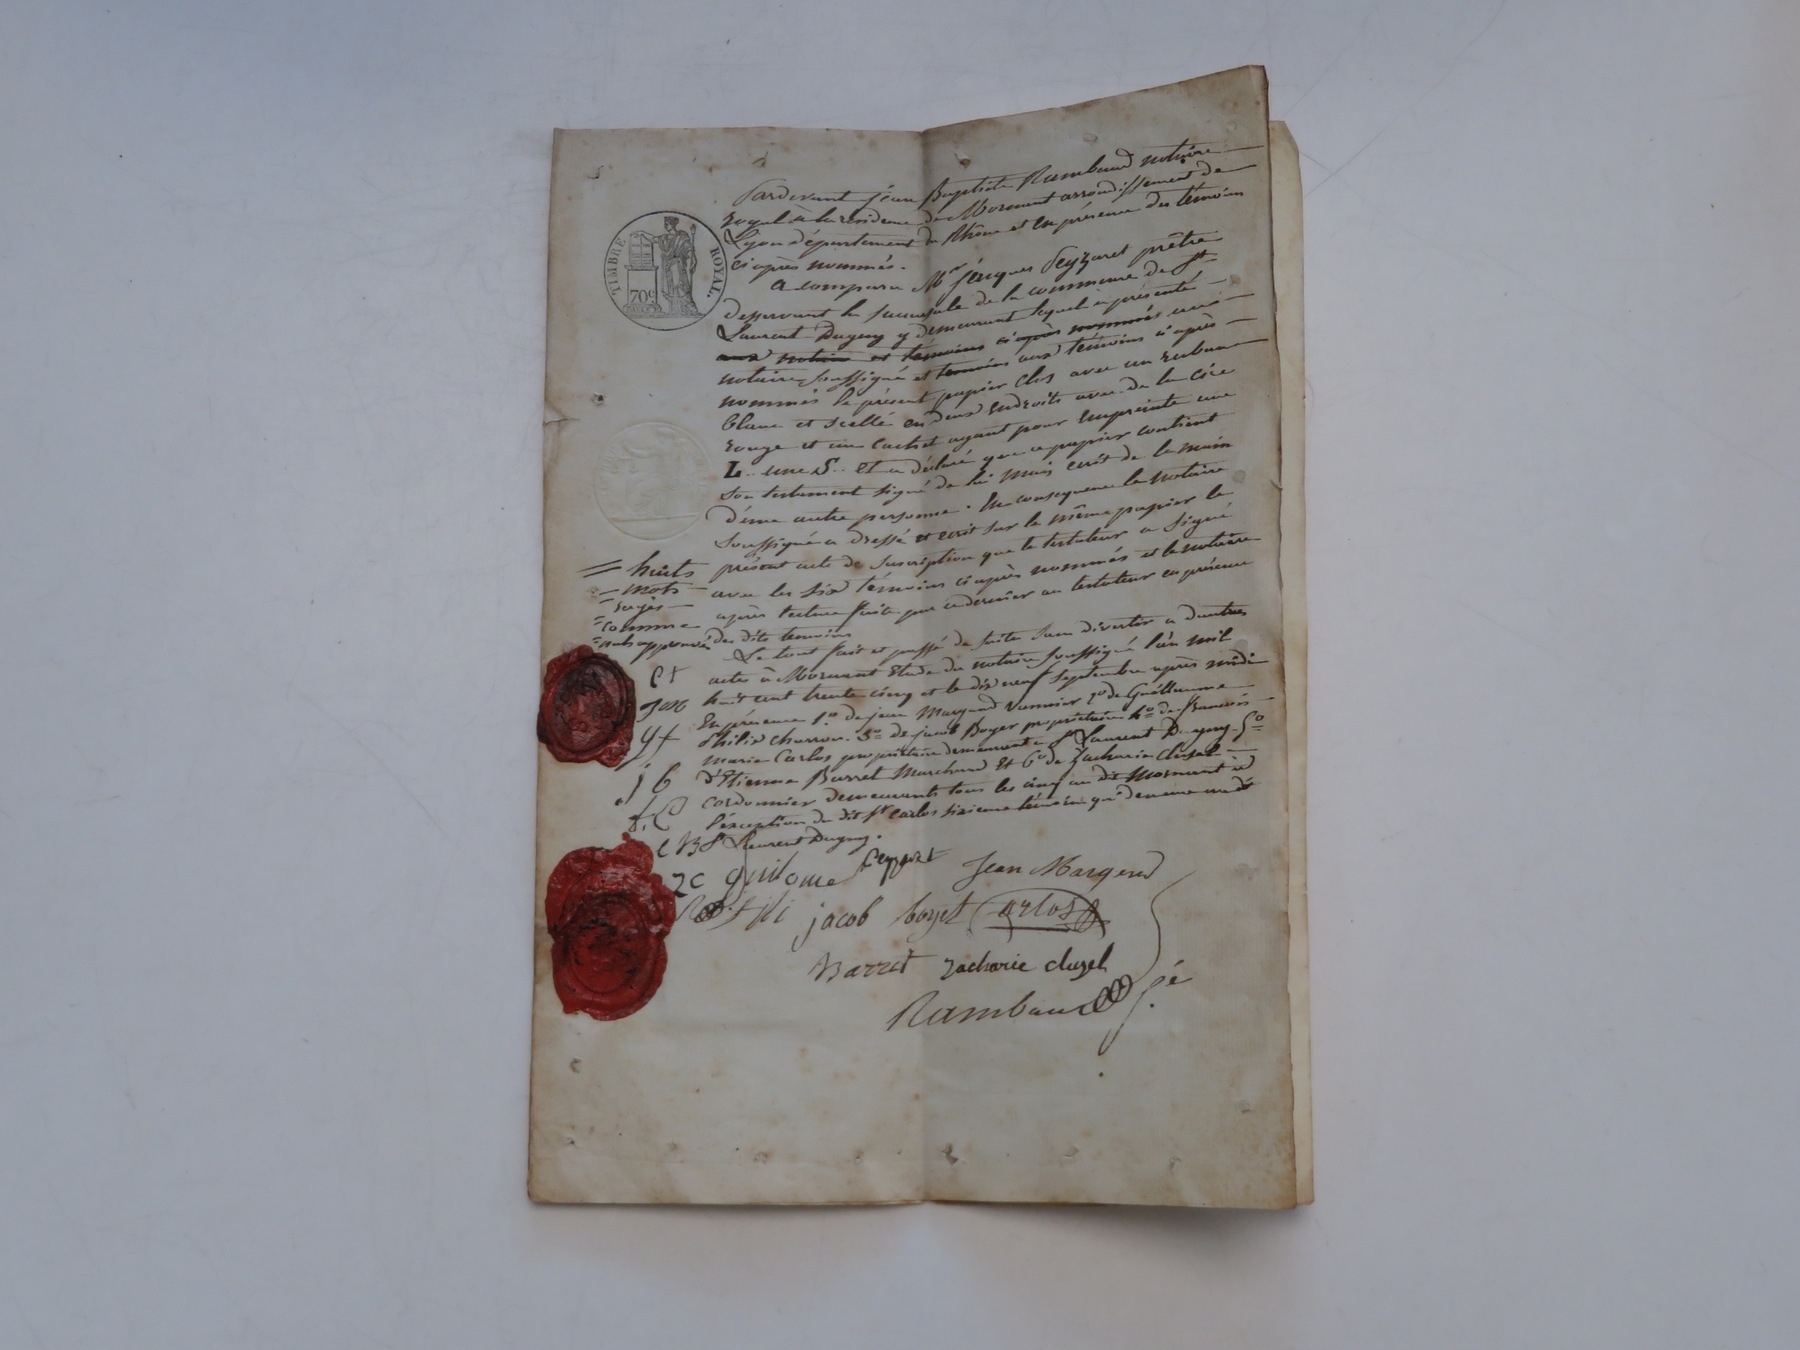 TIMBRE ROYAL.
70c
Pardevant jean Baptiste Rambaud notaire
royal à la residence de Mornant arrondissement de
Lyon département du Rhône et en présence des témoins
ci après nommés.
a comparu Mr jacques Peyzaret prêtre
desservant la succursale de la commune de St
Laurent Dagny y demeurant lequel a présenté
aux notaire et témoins ci après nommés
notaire soussigné et temoins aux témoins ci après
nommés le présent papier clos avec un ruban
blanc et scellé en deux endroits avec de la cire
rouge et un cachet ayant pour empreinte une
L.. une S.. et a déclaré que ce papier contient
son testament signé de lui mais ecrit de la main
d'une autre personne. En consequence le notaire
soussigné a dressé et ecrit sur le même papier le
présent acte de suscription que le testateur a signé
avec les six témoins ci après nommés et le notaire
après lecture faite par ce dernier au testateur en présence
des dits temoins
= huits
= mots
= rayés
= comme
= nuls approuvés
Le tout fait et passé de suite sans divertir a dautres
actes à Mornant Etude du notaire soussigné l'an mil
huit cent trente cinq et le dix neuf septembre après midi
En présence 1o de jean Margand 2o de Guillaume
Philix Charron. 3o de jacob Boyer propriétaire 4o de francois
marie Carlos propriétaire demeurant a St Laurent Dagny 5o
d'Etienne Barret Marchand Et 6o de Zacharie Cluzel
cordonnier demeurants tous les cinq au dit Mornant à
l'exception du dit Sr Carlos sixieme témoin qui demeure au dt
St Laurent Dagny.
Guilome
Peyzaret
Jean Margerand
jacob boyet
Carlos
Barret
zacharie cluzel
Rambaud